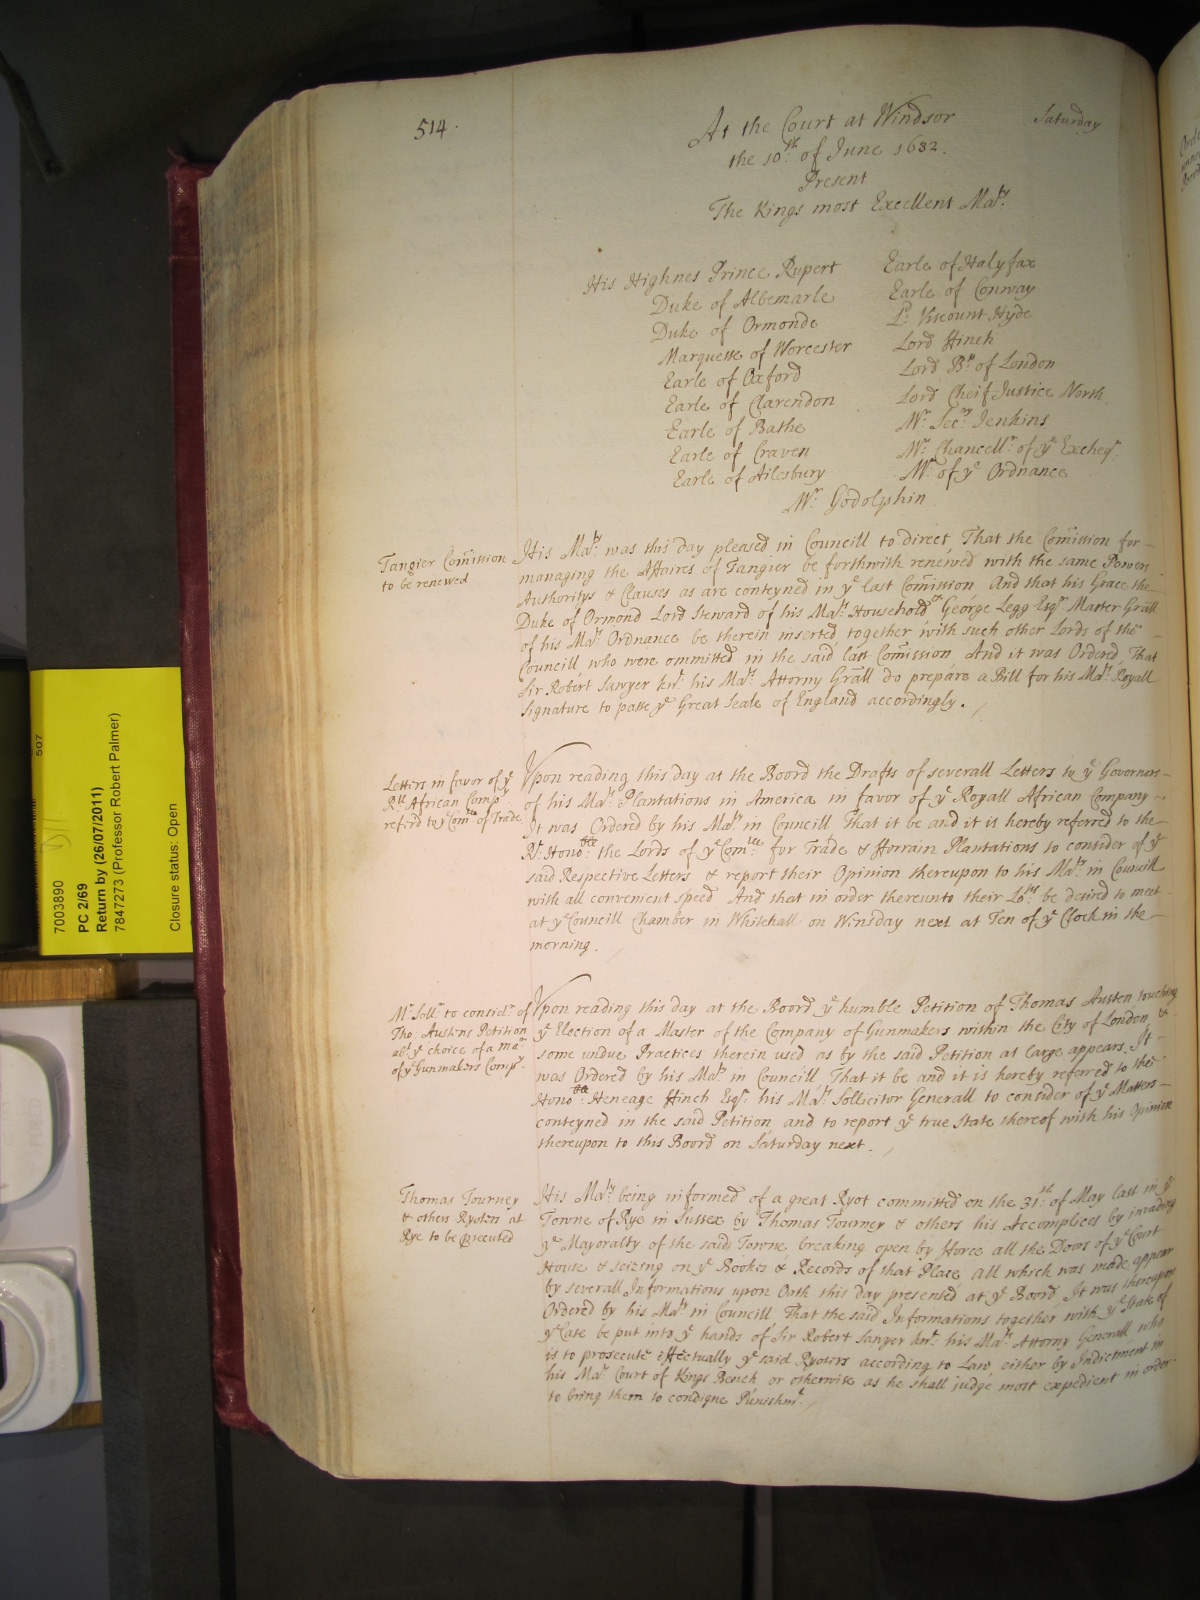 514.
At the Court at Windsor
Saturday
the 10th. of June 1682.
Present
The Kings most Excellent Maty.
His Highnes Prince Rupert
Duke of Albemarle
Duke of Ormonde
Marquesse of Worcester
Earle of Oxford
Earle of Clarendon
Earle of Bathe
Earle of Craven
Earle of Ailesbury
Earle of Halyfax
Earle of Conway
Ld. Viscount Hyde
Lord Finch
Lord Bp. of London
Lord Cheif Justice North.
Mr. Secry. Jenkins
Mr. Chancellr. of ye Excheqr.
Mr. of ye Ordnance
Mr. Godolphin
Tangier Com̄ission
to be renewed
His Maty. was this day pleased in Councill to direct, That the Com̄ission for
managing the Affaires of Tangier be forthwith renewed with the same Powers
Authoritys & Clauses as are conteyned in ye last Com̄ission And that his Grace the
Duke of Ormond Lord Steward of his Mats. Household & George Legg Esqr. Master Grāll
of his Mats. Ordnance be therein inserted together with such other Lords of the
Councill who were ommitted in the said last Com̄ission And it was Ordered, That
Sir Robert Sawyer knt. his Mats. Attorny Grāll do prepare a Bill for his Mats. Royall
Signature to passe ye Great Seale of England accordingly.
Letters in favor of ye
Rll African Compy.
referd to ye Comtee of Trade
Upon reading this day at the Board the Drafts of severall Letters to ye Governors
of his Mats. Plantations in America in favor of ye Royall African Company
It was Ordered by his Maty. in Councill That it be and it is hereby referred to the
Rt. Honoble. the Lords of ye Comtee. for Trade & Forrain Plantations to consider of ye
said Respective Letters & report their Opinion thereupon to his Maty. in Councill
with all convenient speed And that in order thereunto their Lopps. be desired to meet
at ye Councill Chamber in Whitehall on Winsday next at Ten of ye Clock in the
morning.
Mr. Sollr. to considr. of
Tho: Austins Petition
abt. ye choice of a mar.
of ye Gunmakers Compy.
Upon reading this day at the Board ye humble Petition of Thomas Austen touching
ye Election of a Master of the Company of Gunmakers within the City of London, &
some undue Practices therein used as by the said Petition at large appears. It
was Ordered by his Maty. in Councill, That it be and it is hereby referred to the
Honoble. Heneage Finch Esqr. his Mats. Sollicitor Generall to consider of ye Matters
conteyned in the said Petition, and to report ye true State thereof with his Opinion
thereupon to this Board on Saturday next.
Thomas Tourney
& others Ryoters at
Rye to be psecuted
His Maty. being informed of a great Ryot committed on the 31th. of May last in ye
Towne of Rye in Sussex by Thomas Tourney & others his Accomplices by invading
ye Mayoralty of the said Towne, breaking open by Force all the Doors of ye Court
House & seizing on ye Bookes & Records of that Place, All which was made appear
by severall Informations upon Oath this day presented at ye Board, It was thereupon
Ordered by his Maty. in Councill That the said Informations together with ye State of
ye Case be put into ye hands of Sir Robert Sawyer knt. his Mats. Attorny Generall who
is to prosecute effectually ye said Ryoters according to Law either by Indictment in
his Mats. Court of Kings Bench or otherwise as he shall judge most expedient in order
to bring them to condigne Punishmt.
507
7003890
PC 2/69
Return by (26/07/2011)
7847273 (Professor Robert Palmer)
Closure status: Open